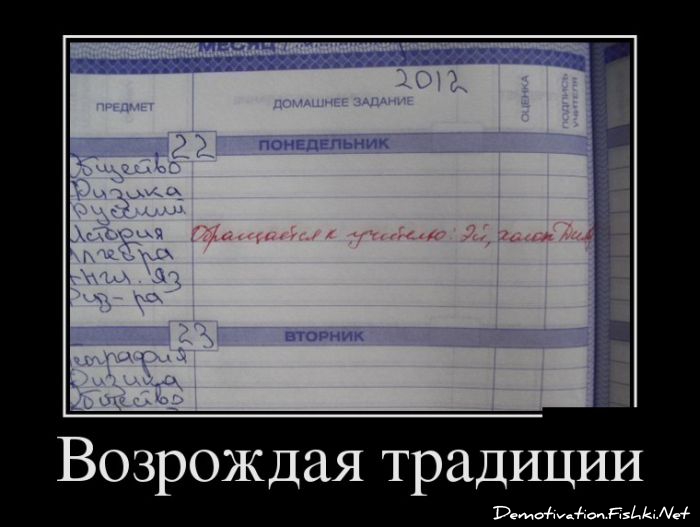 МЕСЯЦ
2012
ПРЕДМЕТ
ДОМАШНЕЕ ЗАДАНИЕ
ОЦЕНКА
ПОДПИСЬ УЧИТЕЛЯ
22 ПОНЕДЕЛЬНИК
Общество
Физика
Русский
История Обращается к учителю: Эй, холоп
Алгебра
Англ. Яз
Физ-ра
23 ВТОРНИК
География
Физика
Общество
Возрождая традиции
Demotivation.Fishki.Net